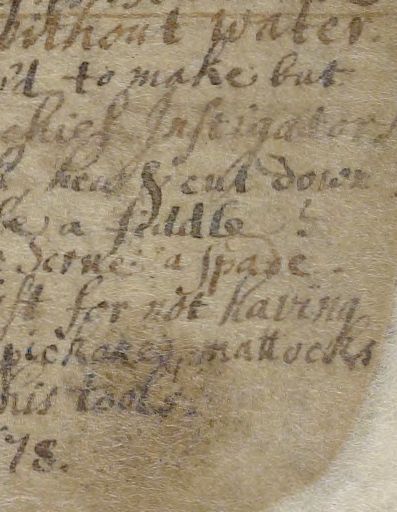 without water.
to make but
chief Instigators
hew & cut down
a fiddle
a spade.
for not having
pickaxes, mattocks
his tools.